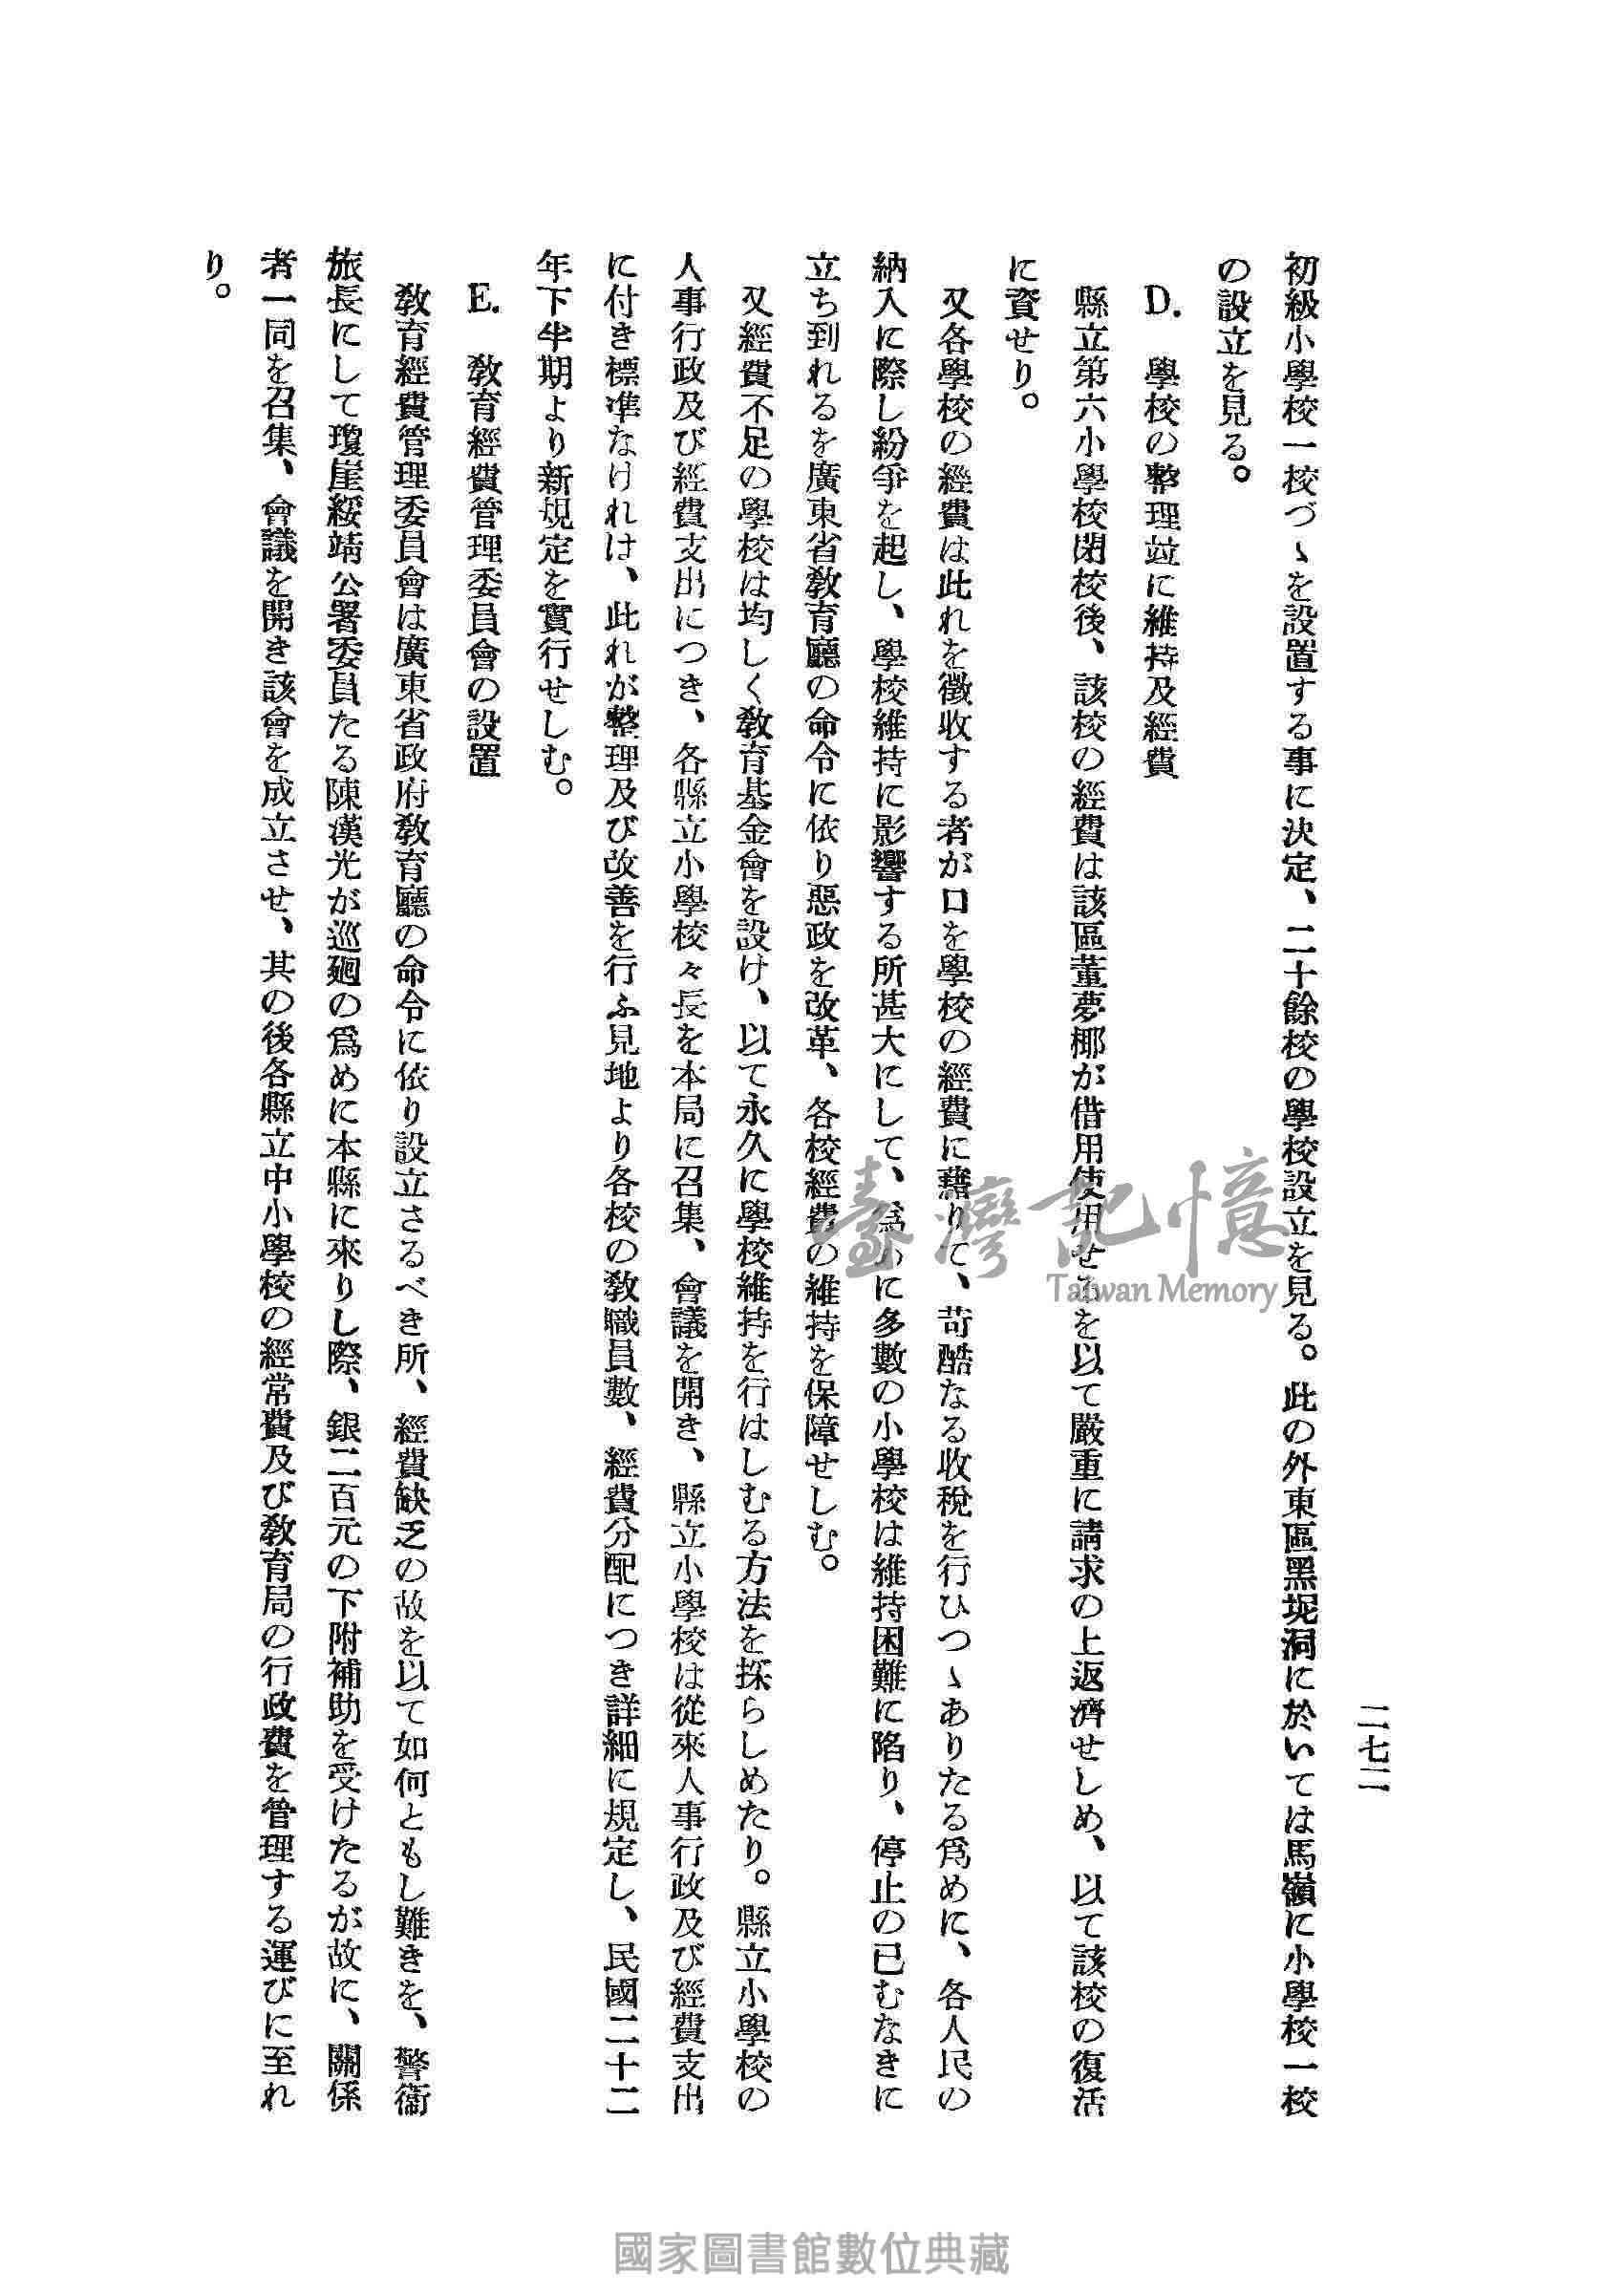 二七二
初級小學校一校づゝを設置する事に決定、二十餘校の學校設立を見る。此の外東區黑坭洞に於いては馬嶺に小學校一校
の設立を見る。
D. 學校の整理竝に維持及經費
縣立第六小學校閉校後、該校の經費は該區董夢椰が借用使用せるを以て嚴重に請求の上返濟せしめ、以て該校の復活
に資せり。
又各學校の經費は此れを徵收する者が口を學校の經費に藉りて、苛酷なる收稅を行ひつゝありたる爲めに、各人民の
納入に際し紛爭を起し、學校維持に影響する所甚大にして、爲めに多數の小學校は維持困難に陷り、停止の已むなきに
立ち到れるを廣東省敎育廳の命令に依り惡政を改革、各校經費の維持を保障せしむ。
又經費不足の學校は均しく敎育基金會を設け、以て永久に學校維持を行はしむる方法を採らしめたり。縣立小學校の
人事行政及び經費支出につき、各縣立小學校々長を本局に召集、會議を開き、縣立小學校は從來人事行政及び經費支出
に付き標準なければ、此れが整理及び改善を行ふ見地より各校の敎職員數、經費分配につき詳細に規定し、民國二十二
年下半期より新規定を實行せしむ。
E. 敎育經費管理委員會の設置
敎育經費管理委員會は廣東省政府敎育廳の命令に依り設立さるべき所、經費缺乏の故を以て如何ともし難きを、警衞
旅長にして瓊崖綏靖公署委員たる陳漢光が巡廻の爲めに本縣に來りし際、銀二百元の下附補助を受けたるが故に、關係
者一同を召集、會議を開き該會を成立させ、其の後各縣立中小學校の經常費及び敎育局の行政費を管理する運びに至れ
り。
臺灣記憶
Taiwan Memory
國家圖書館數位典藏